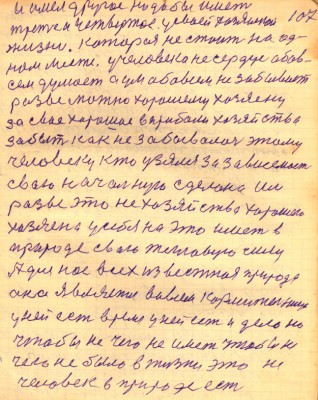 и имел другое надобы имет 107
третье и четвертое. у своей хозяйской
жизни. которая не стоит на од-
ном месте. у человека не сердце абав-
сем думает а ум абавсем не забывает
разве можно хорошему хозяену
за свое хорошае хозяйства
забыт как не забывалося этому
человеку кто узялся за зависемост
сваю началную зделона им
разве это не хозяйства хорошего
хозяена у себя на это имет в
природе сваю тепловую силу
А для нас всех известная природа
ана является вавсем кормительница
у ней ест время у ней ест и дело но
чтобы не чего не имет чтобы не
чего не было в жизни это не
человек в природе ест